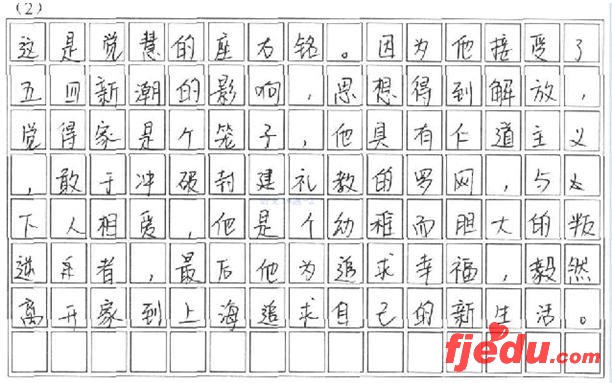 (2)
这是觉慧的座右铭。因为他接受了
五四新潮的影响,思想得到解放,
觉得家是个笼子,他具有仁道主义
,敢于冲破封建礼教的罗网,与女
下人相爱,他是个幼稚而胆大的叛
逆者,最后他为追求幸福,毅然
离开家到上海追求自己的新生活。
fjedu.com